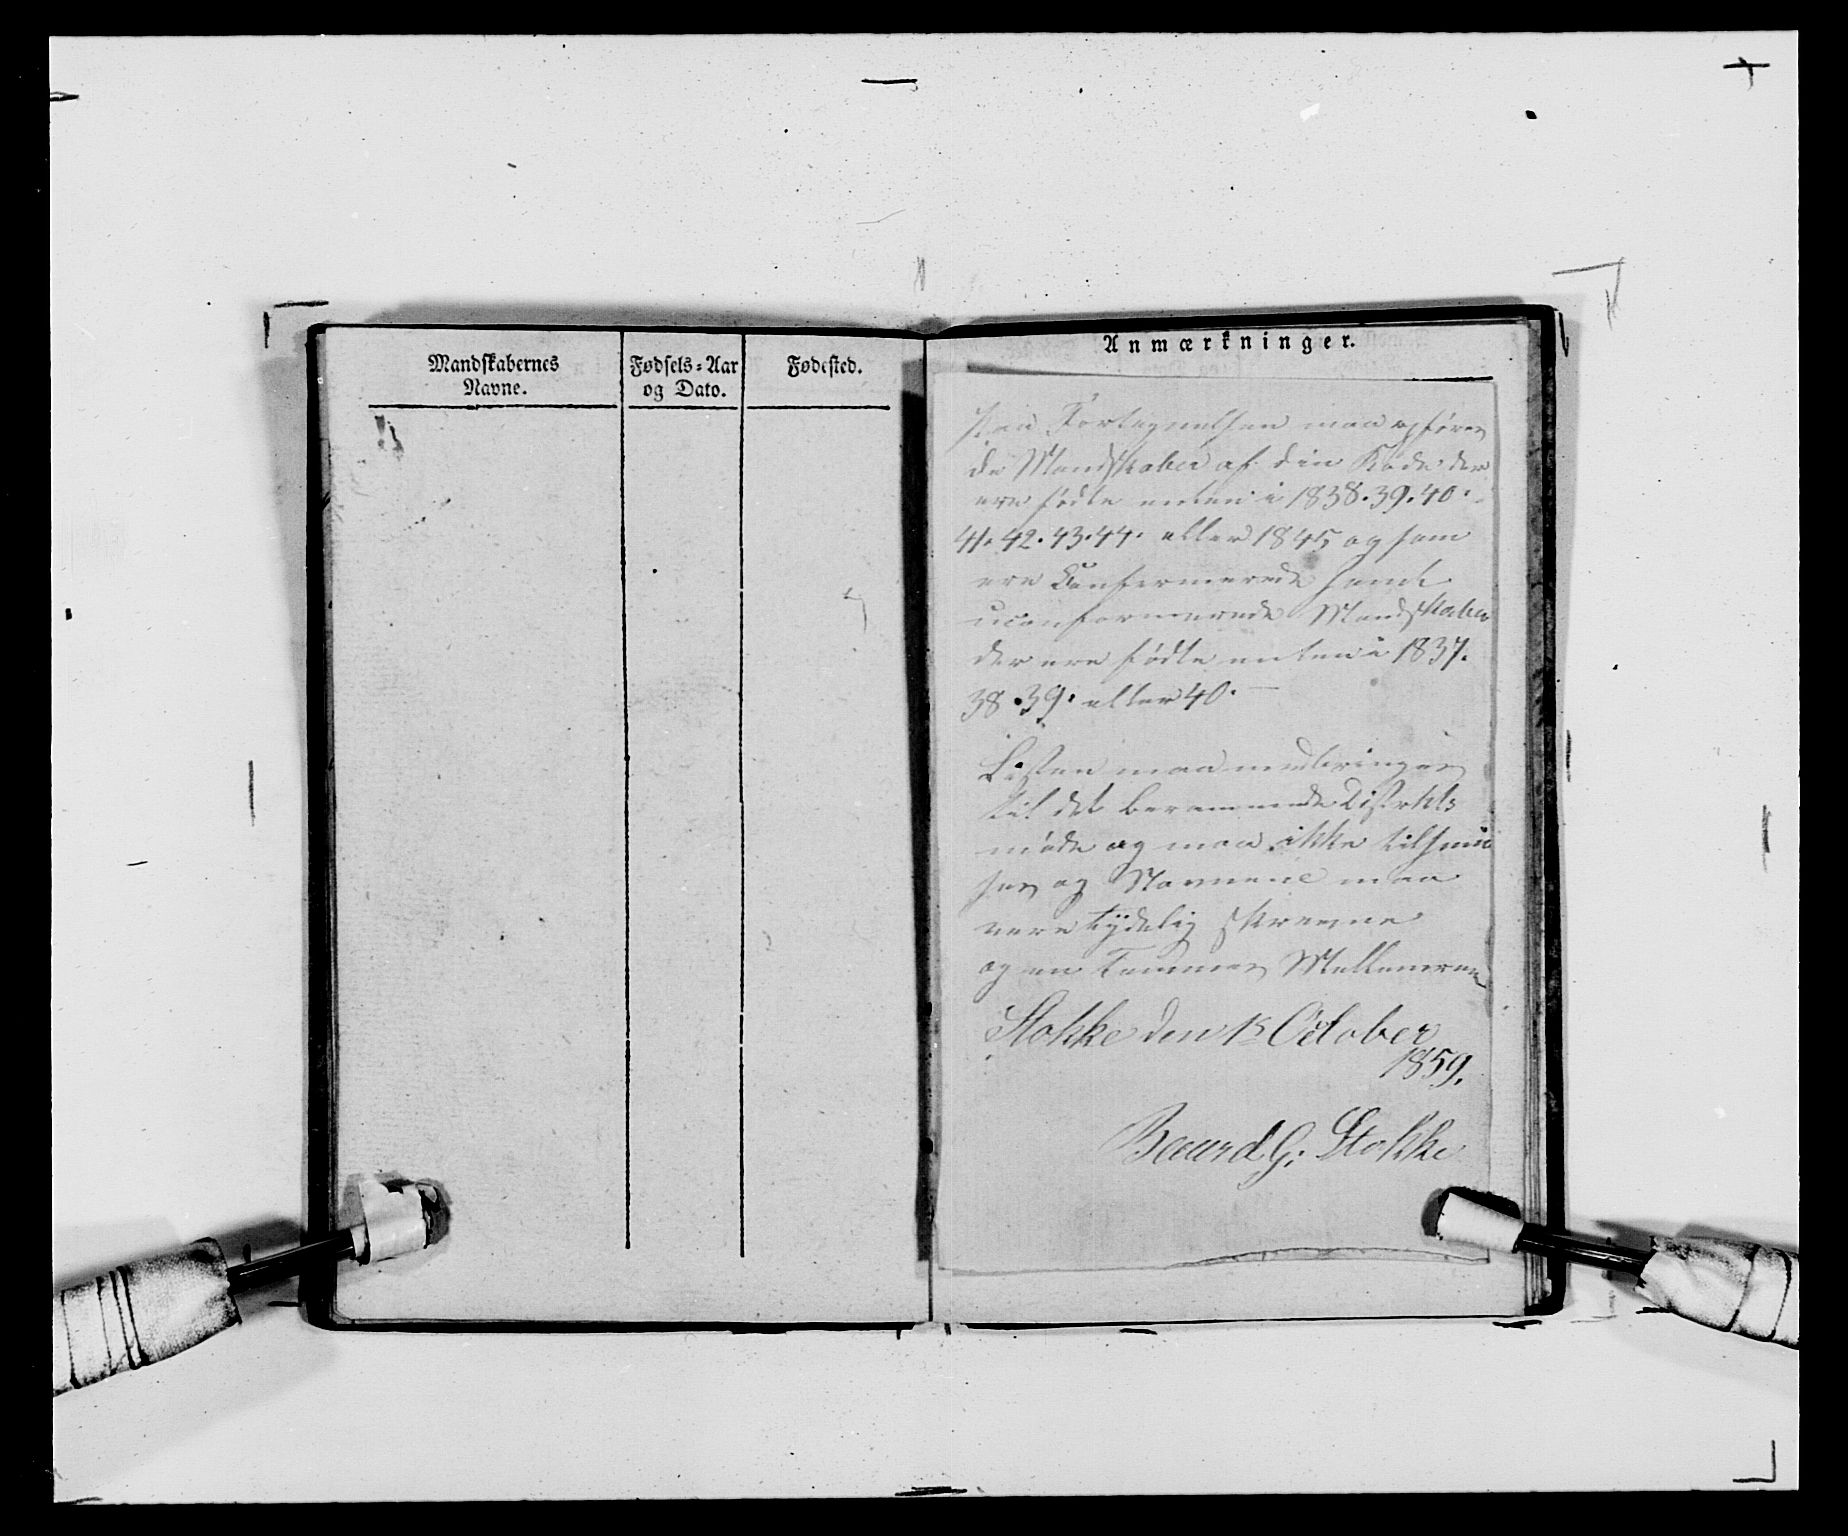 Mandskabernes
Navne.
Fødsels-Aar
og Dato.
Fødested.
Anmærkninger.
Paa Fortegnelsen maa opføres
de Mandskaber af din Rode der
ere fødte enten i 1838. 39. 40.
41. 42. 43. 44. eller 1845 og som
ere Confermerede samt
uconformerede Mandskaber
der ere fødte enten i 1837.
38. 39. eller 40. —
Listen maa medbringes
til det berammede Distrikts
møde og maa ikke tilsmu
ses og Navnene maa
være tydelig skrevne
og en Tommes Mellemrum
Stokke den 1s October
1859.
Baard G: Stokke